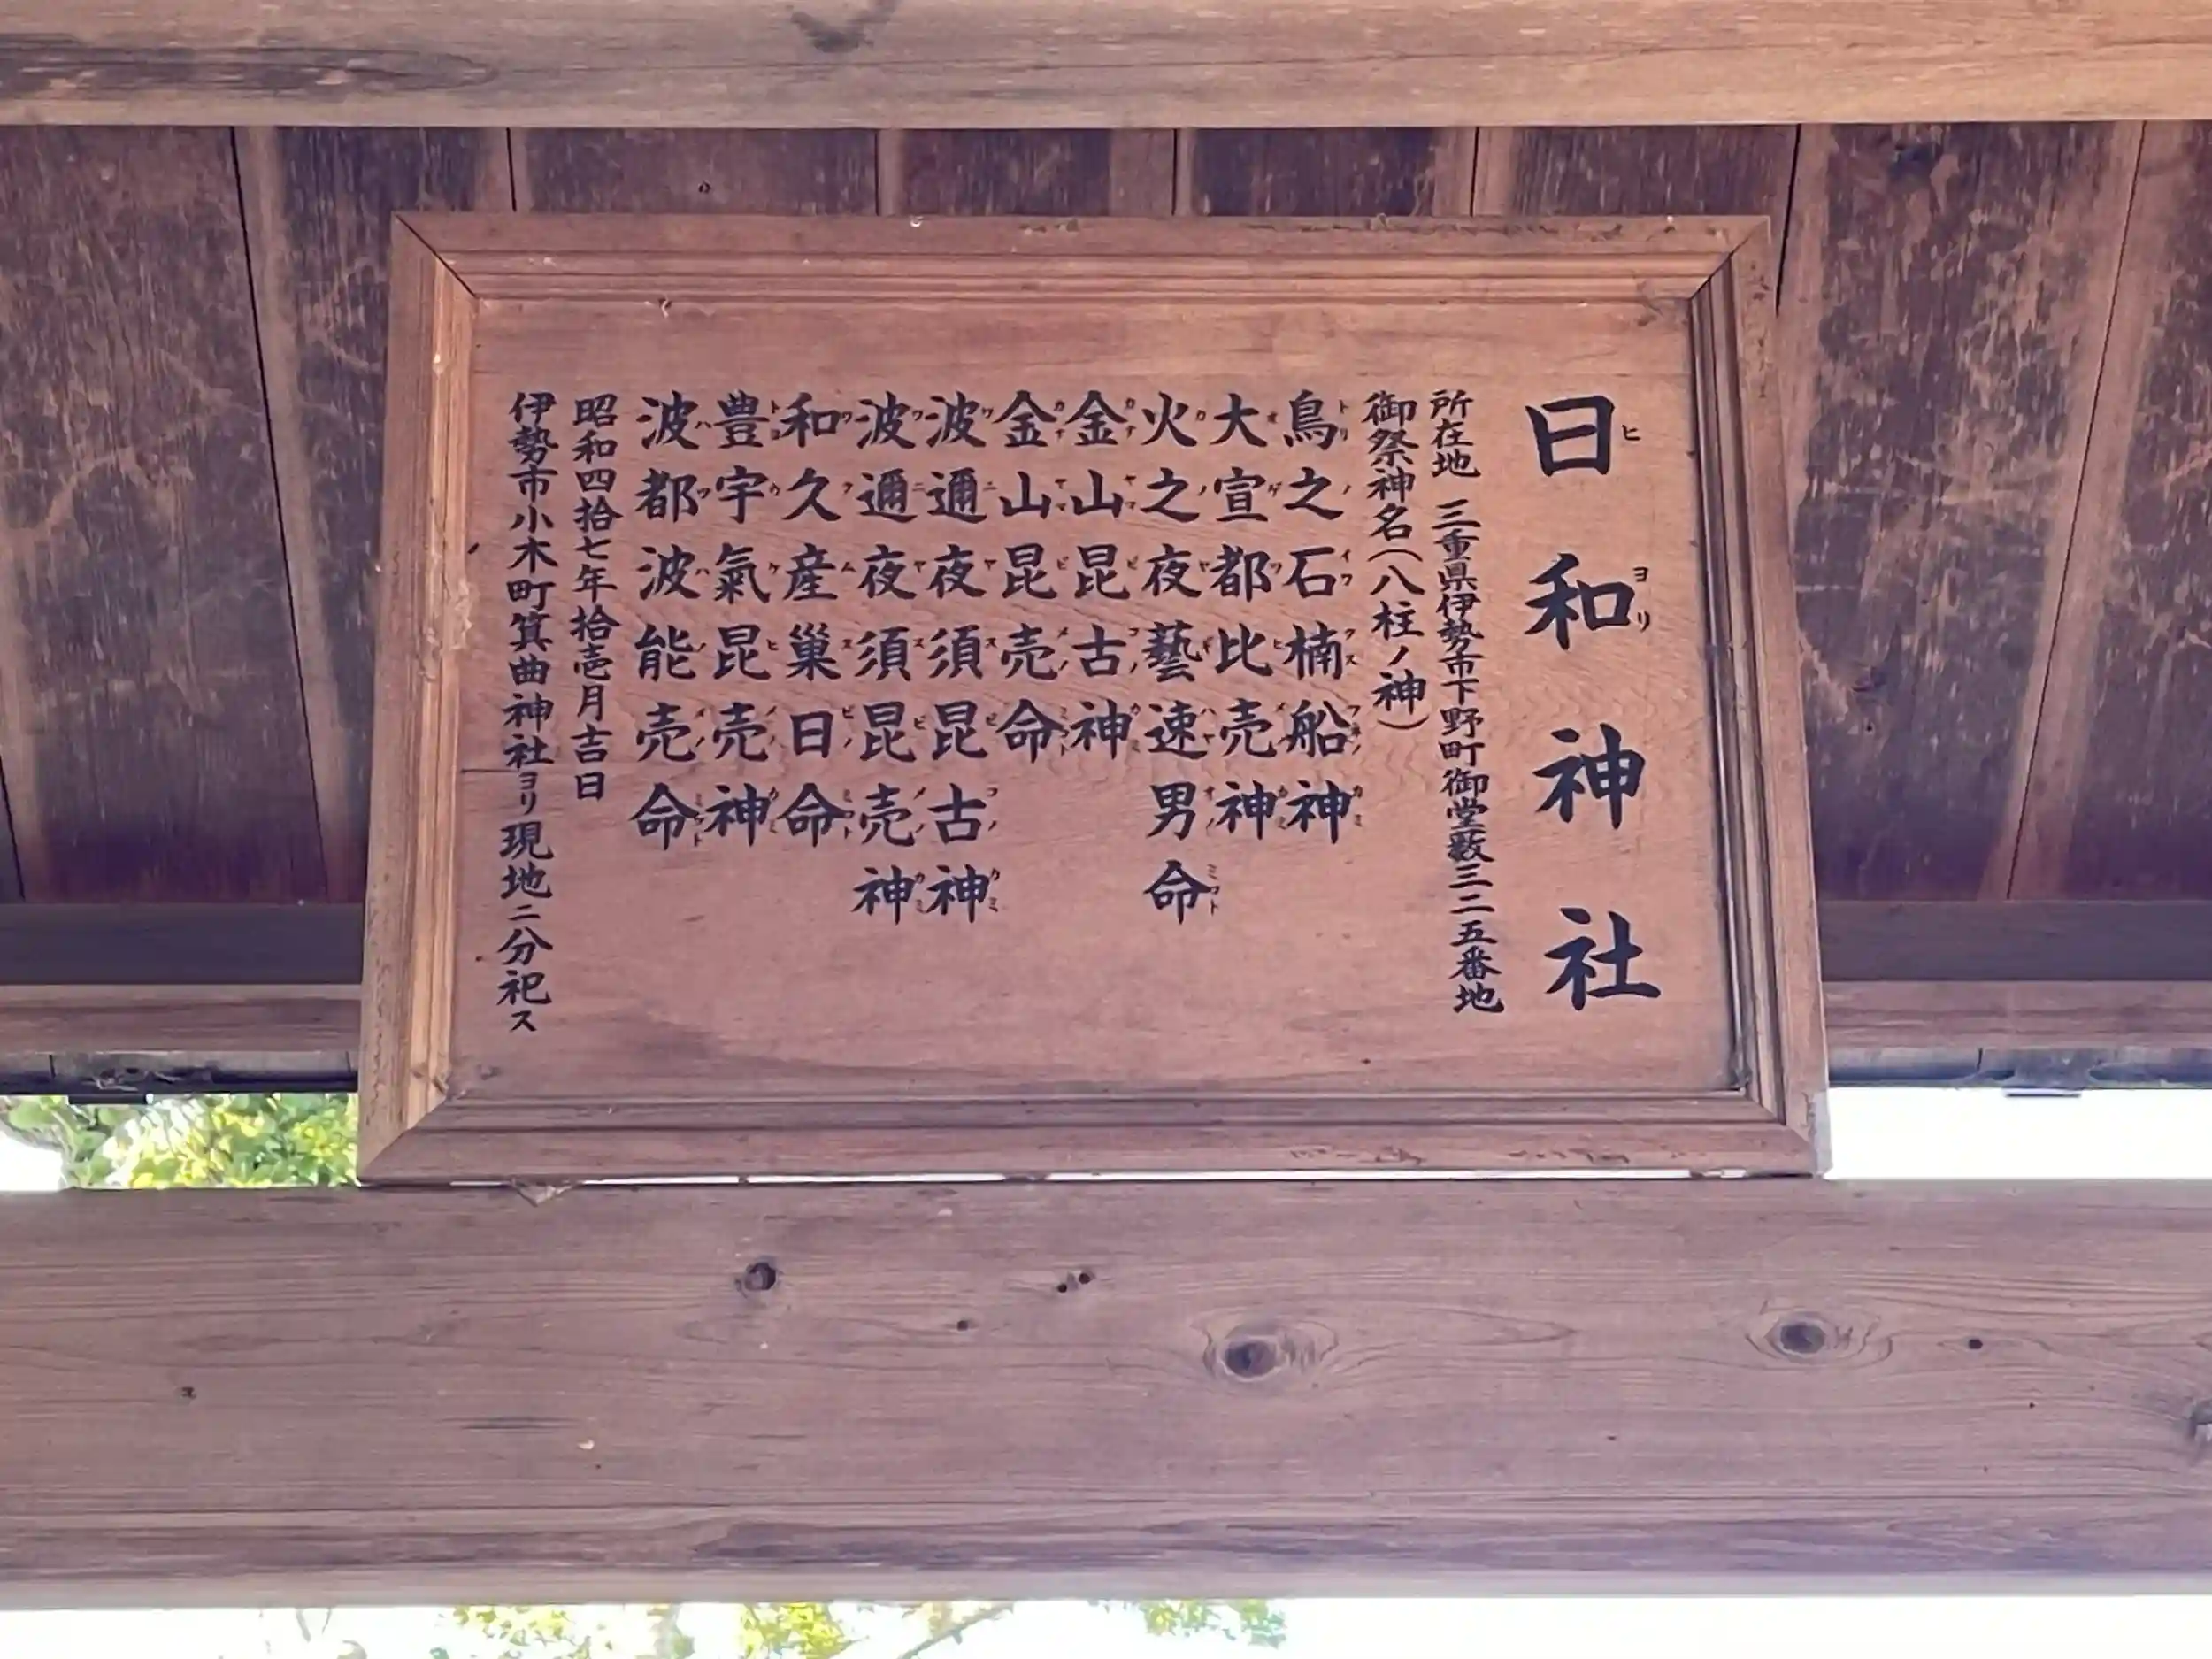 日和神社
所在地 三重県伊勢市下野町御堂藪三二五番地
御祭神名(八柱ノ神)
鳥之石楠船神
大宣都比売神
火之夜藝速男命
金山昆古神
金山昆売命
波邇夜須昆古神
波邇夜須昆売神
和久産巣日命
豊宇氣昆売神
波都波能売命
昭和四拾七年拾壱月吉日
伊勢市小木町箕曲神社ヨリ現地ニ分祀ス